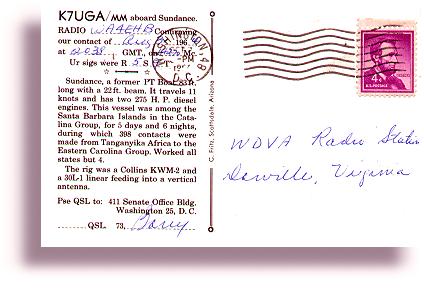 K7UGA/MM aboard Sundance.
RADIO WA4EHB Confirming
our contact of Aug 196
at 2038 GMT., on
Ur sigs were R 5 S T
Sundance, a former PT Boat
long with a 22 ft. beam. It travels 11
knots and has two 275 H. P. diesel
engines. This vessel was among the
Santa Barbara Islands in the Cata-
lina Group, for 5 days and 6 nights,
during which 398 contacts were
made from Tanganyika Africa to the
Eastern Carolina Group. Worked all
states but 4.
The rig was a Collins KWM-2 and
a 30L-1 linear feeding into a vertical
antenna.
Pse QSL to: 411 Senate Office Bldg.
Washington 25, D. C.
QSL. 73, Barry
C. Fritz, Scottsdale, Arizona
WASHINGTON
PM
D.C.
4¢
U.S. POSTAGE
WDVA Radio Station
Danville, Virginia